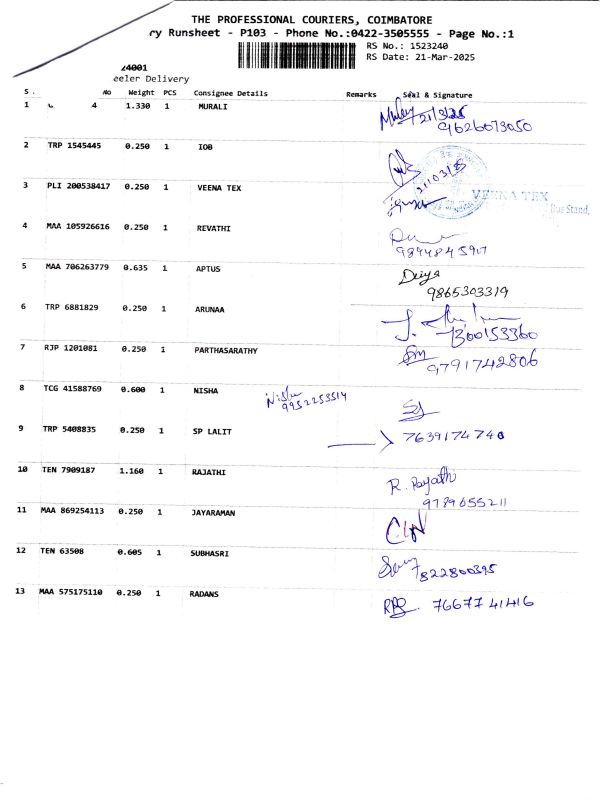 THE PROFESSIONAL COURIERS, COIMBATORE
ry Runsheet - P103 - Phone No.:0422-3505555 - Page No.:1
RS No.: 1523240
RS Date: 21-Mar-2025
24001
eeler Delivery
S. No Weight PCS Consignee Details Remarks Seal & Signature
1 4 1.330 1 MURALI
21/3/25
9626073050
2 TRP 1545445 0.250 1 IOB
21/03/25
3 PLI 200538417 0.250 1 VEENA TEX
VEENA TEX
Bus Stand,
4 MAA 105926616 0.250 1 REVATHI
9894845917
5 MAA 706263779 0.635 1 APTUS
Deiya
9865303319
6 TRP 6881829 0.250 1 ARUNAA
7300153360
7 RJP 1201081 0.250 1 PARTHASARATHY
9791742806
8 TCG 41588769 0.600 1 NISHA
Nisha
9952253514
9 TRP 5408835 0.250 1 SP LALIT
7639174740
10 TEN 7909187 1.160 1 RAJATHI
R. Rajathi
9789655211
11 MAA 869254113 0.250 1 JAYARAMAN
12 TEN 63508 0.605 1 SUBHASRI
7822800395
13 MAA 575175110 0.250 1 RADANS
76677 41416